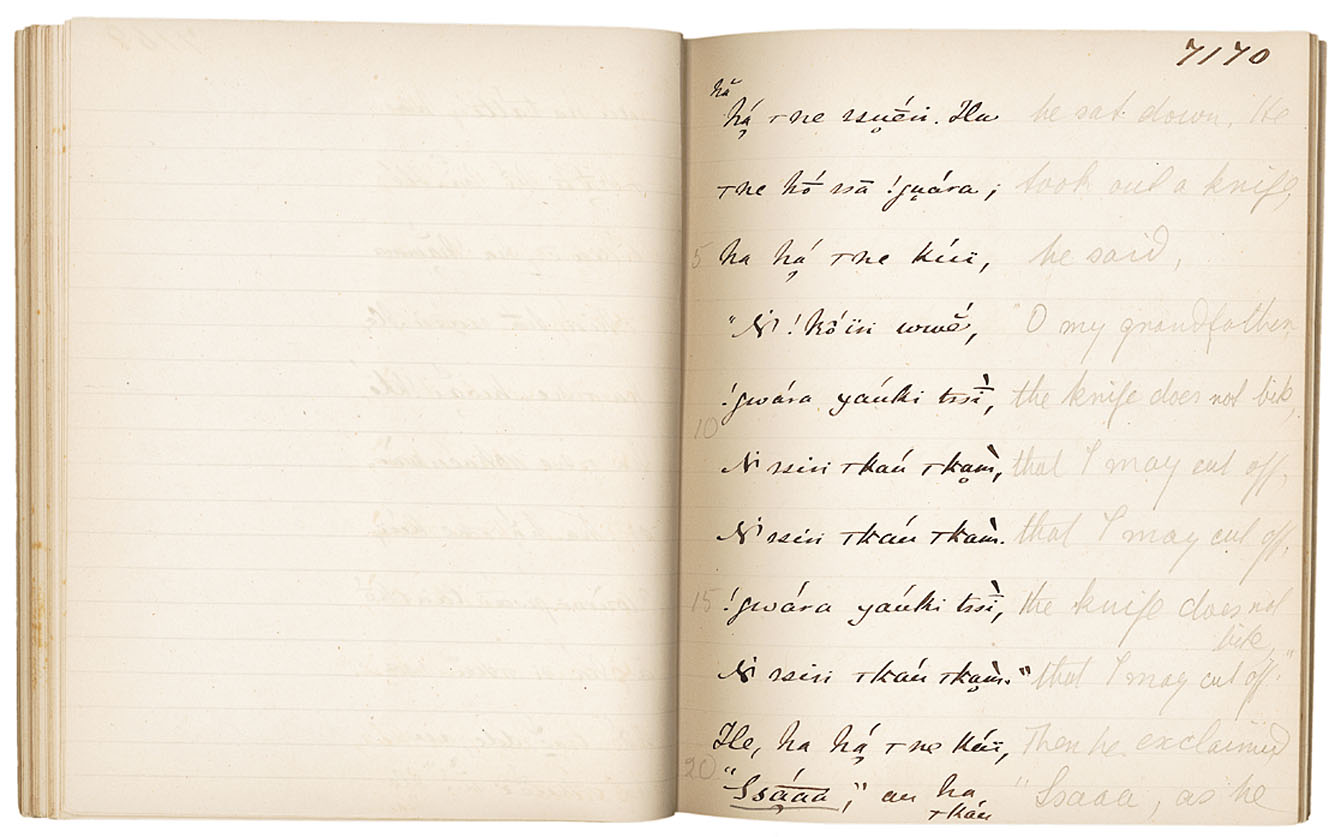 7170
hă
há̤ ⊤ne ssṳ̄́en. Ha he sat down, He
⊤ne hṓ̤ ssā !gṳára; took out a knife,
5 ha há̤ ⊤ne kúï, he said,
"N̄ !kō̃́ïn wwĕ́, "O my grandfather,
!gwára yaúki tssī̀, the knife does not bite,
10
N̄ ssin ⊤kań ⊤ka̤m̀, that I may cut off,
N̄ ssin ⊤kań ⊤kam̀. that I may cut off.
15 !gwára yaúki tssī̀, the knife does not
bite,
N̄ ssin ⊤kań ⊤ka̤m̀." that I may cut off."
He, ha há̤ ⊤ne kúï, Then he exclaimed
20
"Ssā̤́aa," au ha "Ssaaa, as he
⊤kań